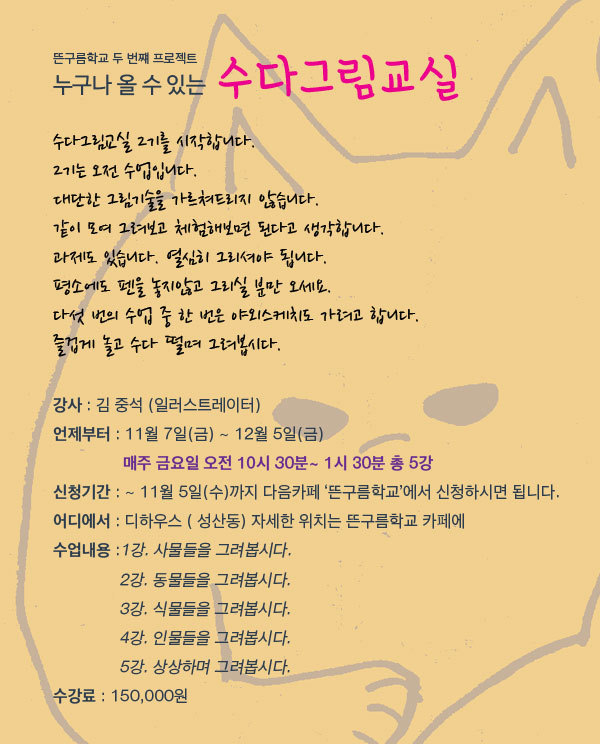 뜬구름학교 두 번째 프로젝트
누구나 올 수 있는 수다그림교실
수다그림교실 2기를 시작합니다.
2기는 오전 수업입니다.
대단한 그림기술을 가르쳐드리지 않습니다.
같이 모여 그려보고 체험해보면 된다고 생각합니다.
과제도 있습니다. 열심히 그리셔야 됩니다.
평소에도 펜을 놓지않고 그리실 분만 오세요.
다섯 번의 수업 중 한 번은 야외스케치도 가려고 합니다.
즐겁게 놀고 수다 떨며 그려봅시다.
강사 : 김 중석 (일러스트레이터)
언제부터 : 11월 7일(금) ~ 12월 5일(금)
매주 금요일 오전 10시 30분~ 1시 30분 총 5강
신청기간 : ~ 11월 5일(수)까지 다음카페 ‘뜬구름학교’에서 신청하시면 됩니다.
어디에서 : 디하우스 ( 성산동) 자세한 위치는 뜬구름학교 카페에
수업내용 : 1강. 사물들을 그려봅시다.
2강. 동물들을 그려봅시다.
3강. 식물들을 그려봅시다.
4강. 인물들을 그려봅시다.
5강. 상상하며 그려봅시다.
수강료 : 150,000원